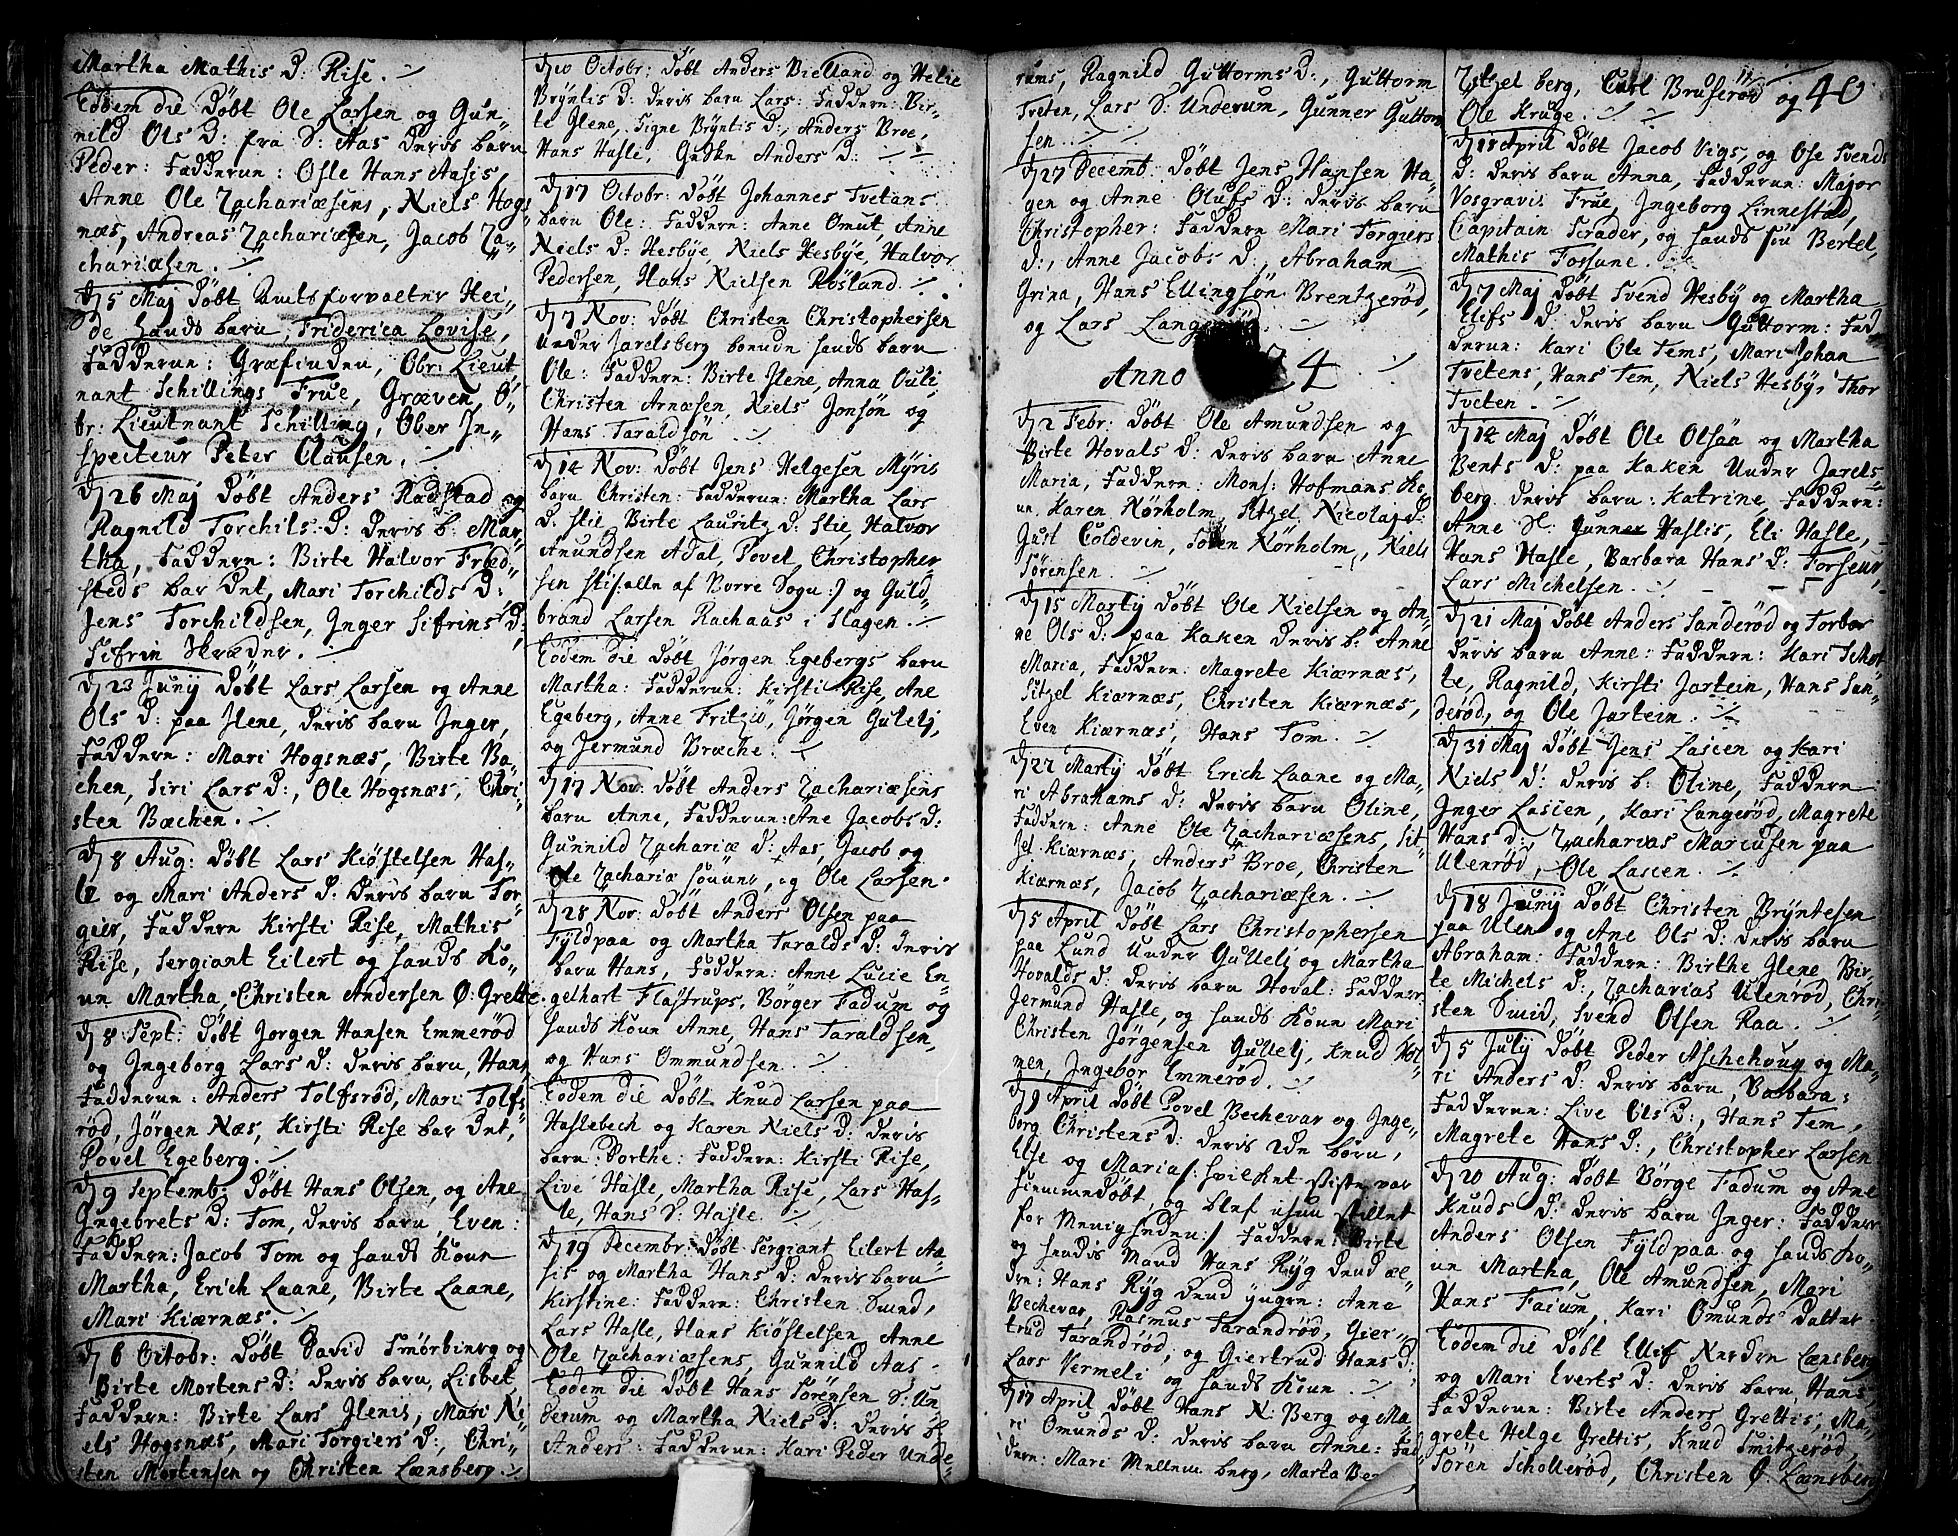 Martha Mathis D: Rise.
Eodem die Døbt Ole Larsen og Gun-
nild Ols D: fra S: Aas deris barn
Peder: Fadderne: Osle Hans Aasis,
Anne Ole Zachariæsens, Niels Hogs
næs, Andreas Zachariæsen, Jacob Za-
chariæsen.
D 5 Maj Døbt Amtsforvalter Hei-
de hands barn, Friderica Lovise,
Fadderne: Græfinden, Obr: Lieut-
nant Schillings Frue, Græven O-
br: Lieutnant Schilling, Ober In-
specteur Peter Clausen.
D 26 Maj Døbt Anders Radstad og
Ragnild Torchils D: deris b: Mar-
tha, Faddern: Birte Halvor Fræd-
steds bar det, Mari Torchilds D:
Jens Torchildsen, Inger Sifrins D:
Sifrin Skræder.
D 23 Junij Døbt Lars Larsen og Anne
Ols D: paa Ilene, deris barn Inger,
Faddern: Mari Hogsnæs, Birte Ba-
chen, Siri Lars D:, Ole Hogsnæs, Chri-
sten Bæchen.
D 8 Aug: Døbt Lars Kiøstelsen Has-
le og Mari Anders D: deris barn Tor-
gier, Faddern Kirsti Rise, Mathis
Rise, Sergiant Eilert og hands Ko-
ne Martha, Christen Andersen Ø: Grette.
D 8 Sept: Døbt Jorgen Hansen Emmerød
og Ingeborg Lars D: deris barn, Hans
Fadderne: Anders Tolfsrød, Mari Tolfs-
rød, Jørgen Næs, Kirsti Rise bar det,
Povel Egeberg.
D 9 Septemb: Døbt Hans Olsen, og Ane
Ingebrets D: Tom, deris barn, Even:
Faddern: Jacob Tom og hands Kone
Martha, Erich Laane, Birte Laane,
Mari Kiærnæs.
D 6 Octobr: Døbt David Smørbierg og
Birte Mortens D: deris barn, Lisbet
Faddern: Birte Lars Ilenis, Mari Ni-
els Hogsnæs, Mari Torgiers D:, Chri-
sten Mortensen og Christen Lænsberg.
D 10 Octobr: Døbt Anders Bielland og Helie
Bryntis D: deris barn Lars: Faddern: Bir-
te Ilene, Signe Bryntis D:, Anders Broe,
Hans Hasle, Anders D:
D 17 Octobr: Døbt Johannes Tvetans
barn Ole: Faddern: Anne Omut, Anne
Niels D: Hesbye, Niels Hesbye, Halvor
Pedersen, Hans Nielsen Røsland.
D 7 Nov: Døbt Christen Christophersen
under Jarelsberg boende hands barn
Ole: Faddern: Birte Ilene, Anna Ouli,
Christen Arnæsen, Niels Jonsøn og
Hans Taraldsøn.
D 14 Nov: Døbt Jens Helgesen Myris
barn Christen: Fadderne: Martha Lars
D: Stie, Birte Lauritz D: Stie, Halvor
Anundsen Adal, Povel, Christopher
sen af Norre Sogn:) og Guld-
brand Larsen Rachaas i Slagen.
Eodem die Døbt Jørgen Egebergs barn
Martha: Fadderne: Kirsti Rise, Ane
Egeberg, Anne Fritzø, Jørgen Gulelj,
og Jermund Bræche.
D 17 Nov: Døbt Anders Zachariæsens
barn Anne, Fadderne: Ane Jacobs D:
Gunnild Zachariæ D: Aas, Jacob og
Ole Zachariæ sønner, og Ole Larsen.
D 28 Nov: Døbt Anders Olsen paa
Fyldpaa og Martha Taralds D: deris
barn Hans, Faddern: Anne Lucie En-
gelhart Flastrups, Børger Fadum og
hands Kone Anne, Hans Taraldsen,
og Hans Ommundsen.
Eodem die Døbt Knud Larsen paa
Haslebech og Karen Niels D: deris
barn: Dorthe: Faddern: Kirsti Rise,
Live Hasle, Martha Rise, Lars Has-
le, Hans S: Hasle.
D 19 Decembr: Døbt Sergiant Eilert Aa-
sis og Martha Hans D: deris barn
Kirstine: Faddern: Christen Smed,
Lars Hasle, Hans Kiøstelsen, Anne
Ole Zachariæsens, Gunnild Aas.
Eodem die Døbt Hans Sørensen S: Un-
derum og Martha Niels D: deris b:
Anders: Fadderne: Kari Peder Unde-
rums, Ragnild Guttorms D:, Guttorm
Tveten, Lars S: Underum, Gunner Guttorm
sen.
D 27 Decemb: Døbt Jens Hansen Ha-
gen og Anne Olufs D: deris barn
Christopher: Faddern Mari Torgiers
D:, Anne Jacobs D:, Abraham
Grina, Hans Ellingsøn Brentzerød,
og Lars
Anno 24
D 2 Febr: Døbt Ole Amundsen og
Birte Hovals D: deris barn Anne
Maria, Faddern: Mons: Hofmans Ko-
ne. Karen Nørholm, Sitzel Nicolaj D:
Just Coldevin, Søren Nørholm, Niels
Sørensen.
D 15 Martij Døbt Ole Nielsen og An-
ne Ols D: paa Kaken deris b: Anne
Maria, Faddern: Magrete Kiærnæs,
Sitzel Kiærnæs, Christen Kiærnæs,
Even Kiærnæs, Hans Tom.
D 22 Martij Døbt Erich Laane og Ma-
ri Abrahams D: deris barn Oline,
Faddern: Anne Ole Zachariæsens, Sit-
zel Kiærnæs, Anders Broe, Christen
Kiærnæs, Jacob Zachariæsen.
D 5 April Døbt Lars Christophersen
paa Lund under Gullelj og Martha
Hovalds D: deris barn Hoval: Faddern
Jermund Hasle, og hands Kone Mari
Christen Jørgensen Gullelj, Knud Hol-
men, Ingebor Emmerød.
D 9 April Døbt Povel Bechevar og Inge-
borg Christens D: deris 2de børn,
Else og Maria /: hvilket sidste var
hiemmedøbt, og blef
for Menigheden:/ Faddern: Birte
og hendis Mand Hans Ryg dend æl-
dre: Hans Ryg dend yngre: Anne
Bechevar, Rasmus Tarandrød, Gier-
trud Tarandrød, og Giertrud Hans D:
Lars Vermeli og hands Kone.
D 17 April Døbt Hans N: Berg og Ma-
ri Omunds D: deris barn Anne: Fad-
dern: Mari Mellem berg, Marta Be
Zitzel berg, Carl Bruserød og 40
Ole Kruge.
D 18 April Døbt Jacob Vigs, og Ose Svends
D: deris barn Anna, Fadderne: Major
Vosgravis Frue, Ingeborg Linnestad,
Capitain Scrader, og hands søn Bertel,
Mathis Fossune.
D 7 Maj Døbt Svend Hesby og Martha
Elifs D: deris barn Guttorm: Fad-
derne: Kari Ole Tems, Mari Johan
Tvetens, Hans Tem, Niels Hesby, Thor
Tveten.
D 14 Maj Døbt Ole Olsøn og Martha
Bents D: paa Kaken Under Jarels-
berg deris barn: Katrine, Faddern:
Anne Sl: Gunner Haslis, Eli Hasle,
Hans Hasle, Barbara Hans D:
Lars Michelsen.
D 21 Maj Døbt Anders Sanderød og Torbor
deris barn Anne: Faddern: Kari
te, Ragnild, Kirsti Jartein, Hans San-
derød, og Ole Jartein.
D 31 Maj Døbt Jens Lascen og Kari
Niels D: deris b: Oline, Faddern:
Inger Lascen, Kari Langerød, Magrete
Hans D: Zacharias Marcusen paa
Ulenrød, Ole Lascen.
D 18 Junij Døbt Christen Bryntesen
paa Ulen og Ane Ols D: deris barn
Abraham: Faddern: Birthe Ilene, Bir-
te Michels D:, Zacharias Ulenrød, Chri-
sten Smid, Svend Olsen Raa.
D 5 July Døbt Peder Aschehoug og Ma-
ri Anders D: deris barn, Barbara:
Fadderne: Live Ols D:, Hans Tem,
Magrete Hans D:, Christopher Larsen
D 20 Aug: Døbt Børge Fadum og Ane
Knuds D: deris barn Inger: Faddern
Anders Olsen Fyldpaa og hands Ko-
ne Martha, Ole Amundsen, Mari
Hans Faium, Kari Omunds Datter.
Eodem die Døbt Ellif Nerdre Lænsberg
og Mari Everts D: deris barn Hans,
Fadderne: Birte Anders Grettis, Ma-
grete Helge Grettis, Knud Smitzerød,
Søren Schollerød, Christen Ø: Lænsberg